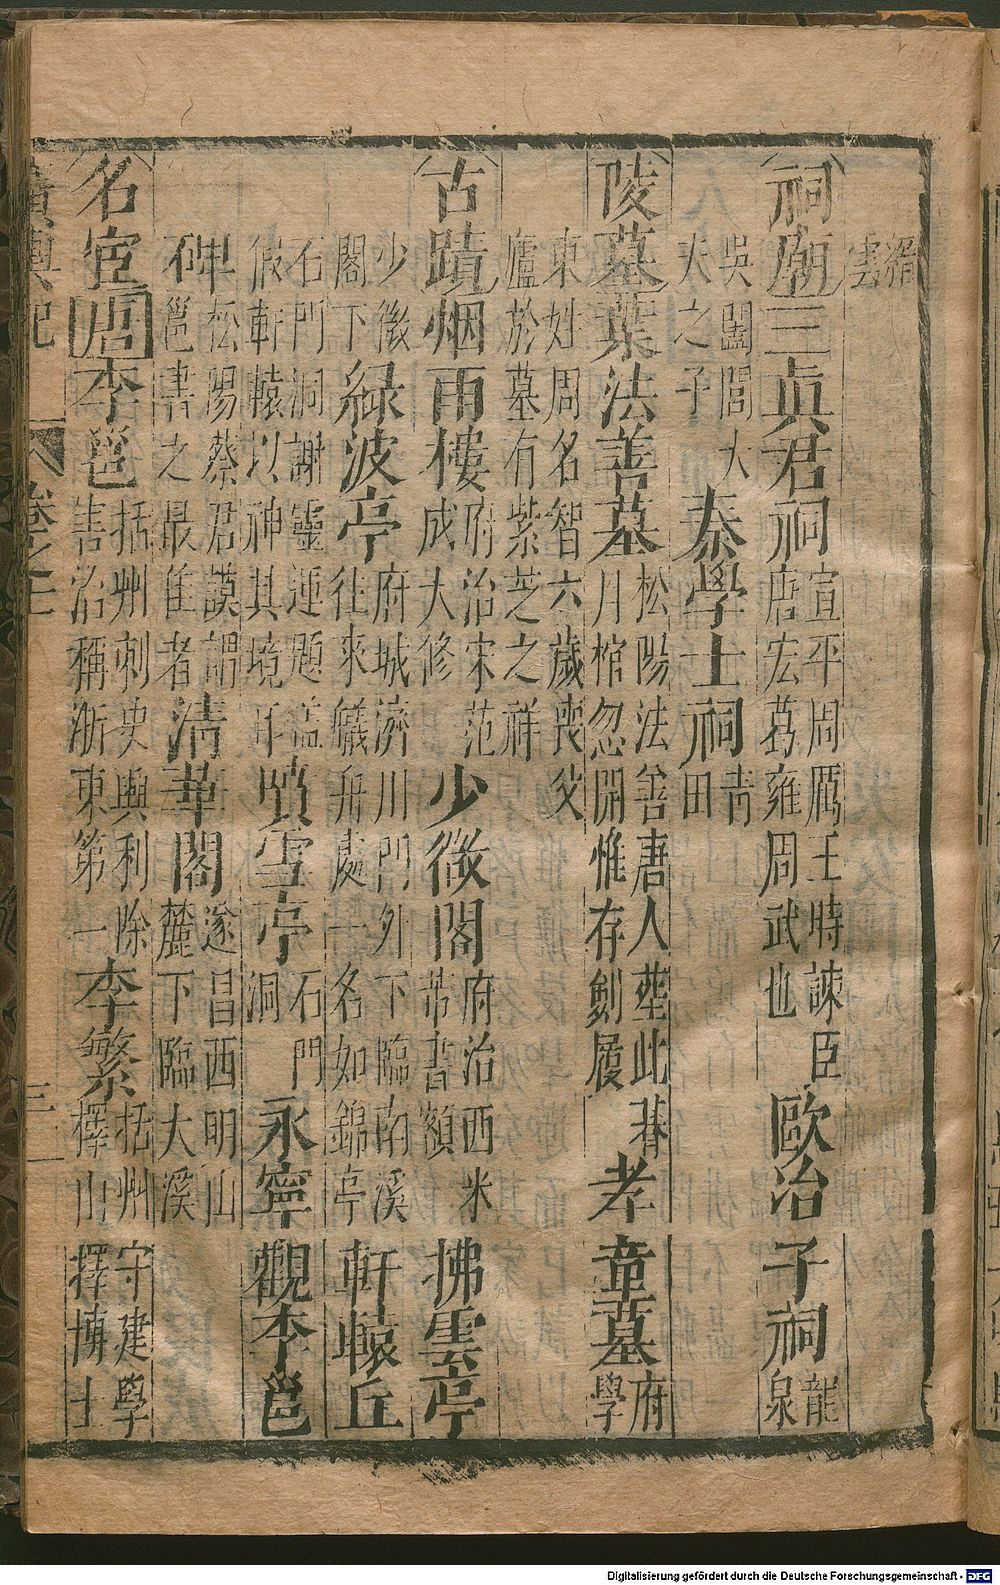 縉
雲
祠廟三真君祠
宣平周厲王時諫臣
唐宏葛雍周武也
歐冶子祠
龍
泉
吳闔閭大
夫之子
秦學士祠
青
田
陵墓葉法善墓
松陽法善唐人塟此朞
月棺忽開惟存劍履
孝童墓
府
學
東姓周名智六歲喪父
廬於墓有紫芝之祥
古蹟烟雨樓
府治宋范
成大修
少微閣
府治西米
芾書額
拂雲亭
少微
閣下
綠波亭
府城濟川門外下臨南溪
往來艤舟處一名如錦亭
軒轅丘
石門洞謝靈運題盖
假軒轅以神其境耳
噴雪亭
石門
洞
永寧觀李邕
碑
松陽蔡君謨謂
邕書之最隹者
清華閣
遂昌西明山
麓下臨大溪
名宦唐李邕
括州刺史興利除
害治稱浙東第一
李繁
括州守建學
擇山擇博士
廣輿記 卷之十
Digitalisierung gefördert durch die Deutsche Forschungsgemeinschaft - DFG